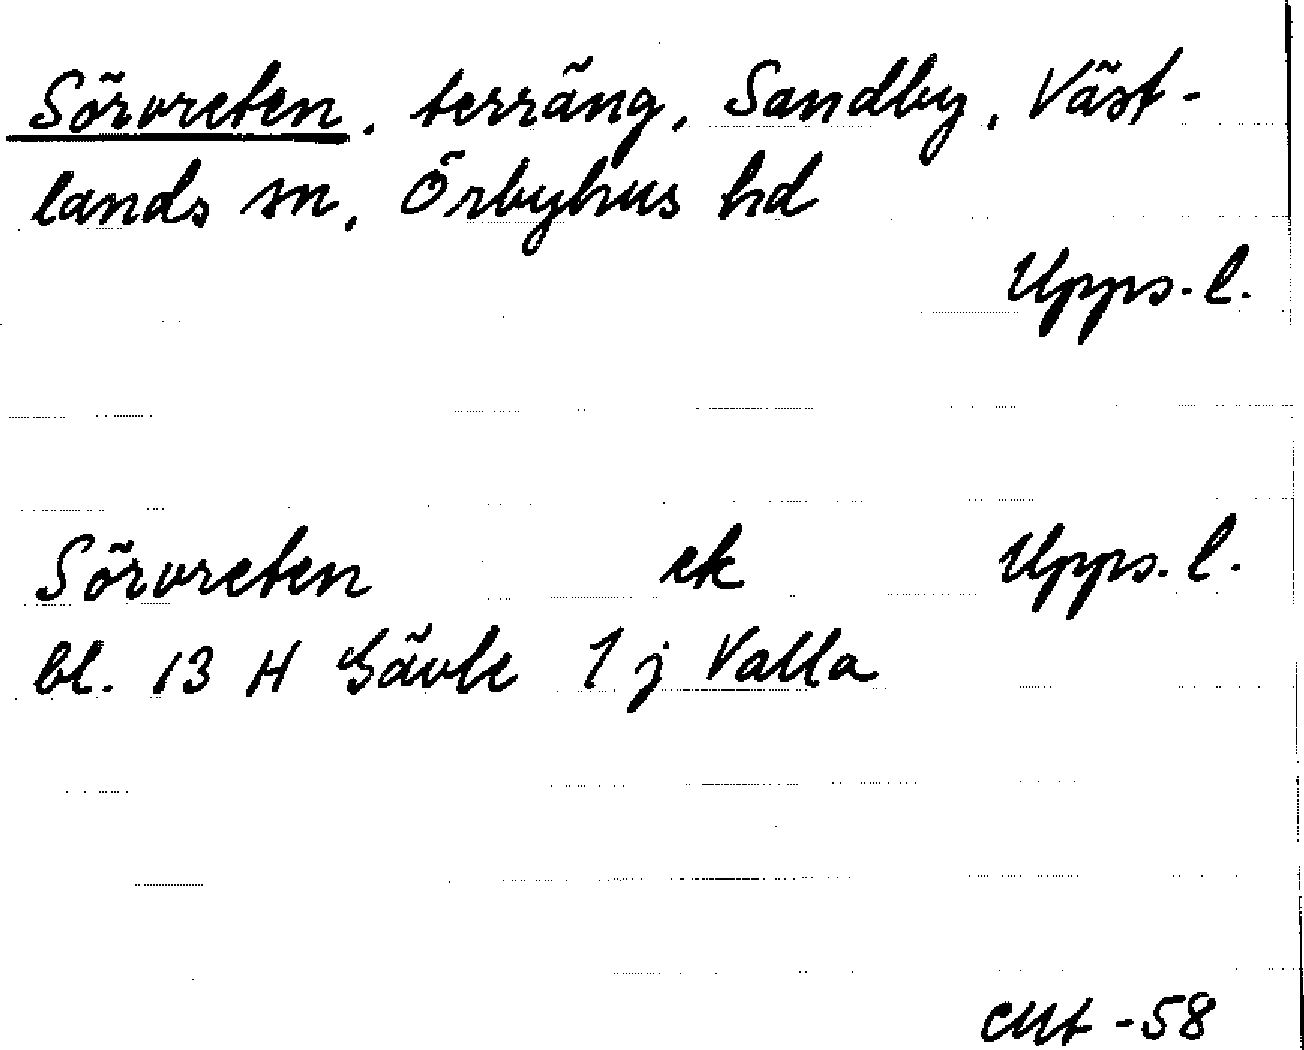 Sörvreten, terräng, Sandby, Väst-
lands sn, Örbyhus hd
Upps. l.
Sörvreten ek Upps. l.
bl. 13 H Gävle 1 j Valla
-58